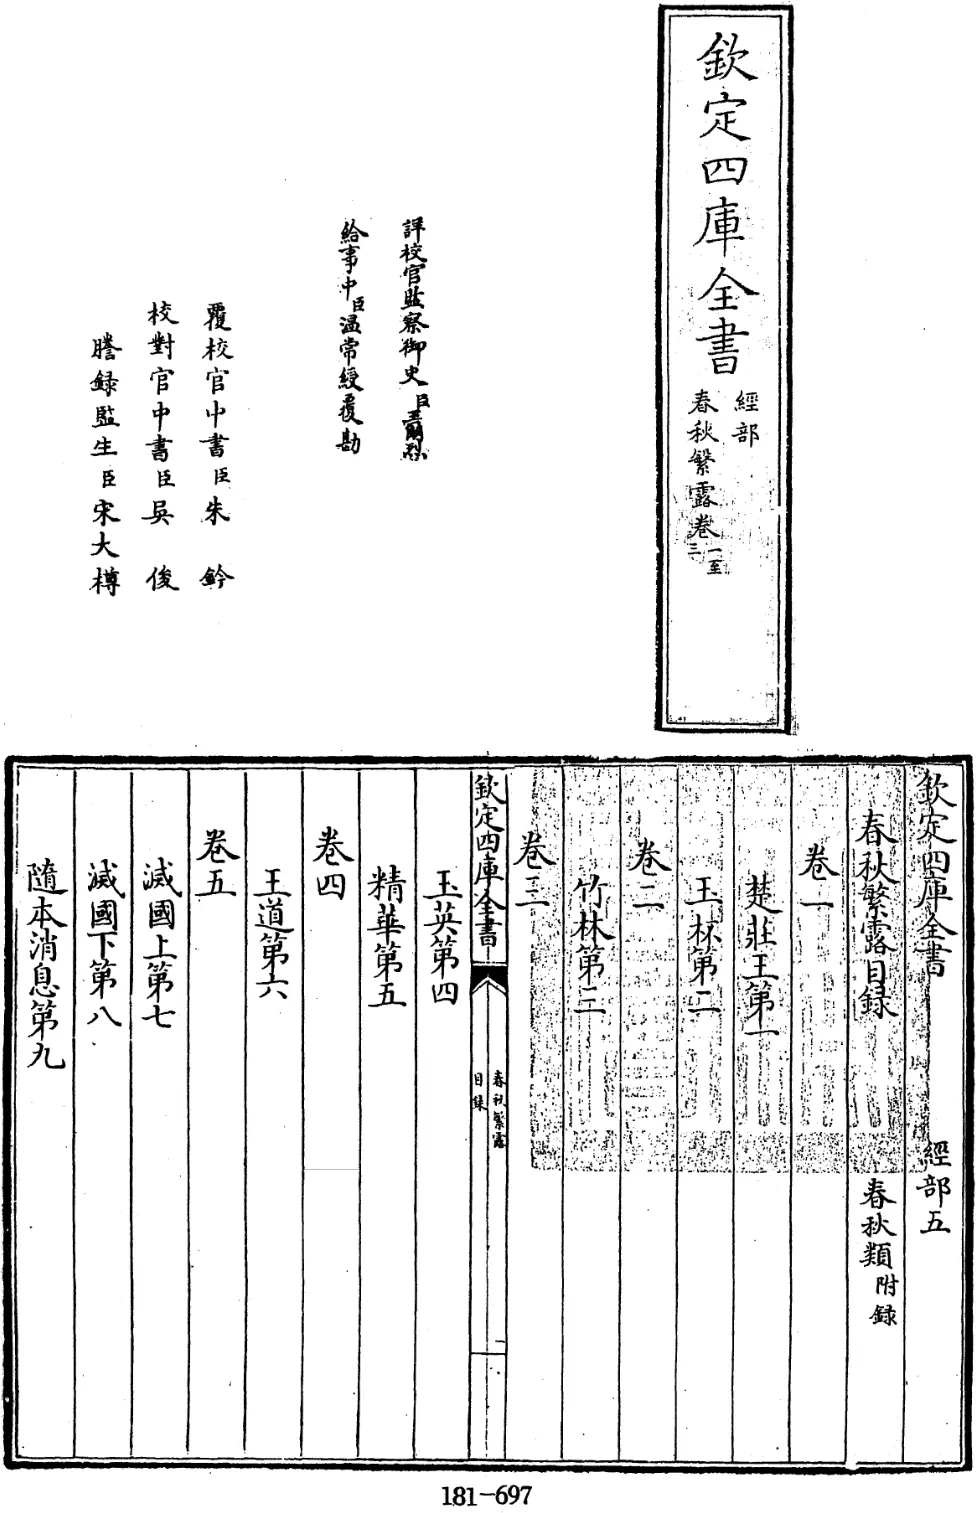 欽定四庫全書
經部
春秋繁露卷一至三
詳校官監察御史臣王爾烈
給事中臣温常綬覆勘
覆校官中書臣朱鈐
校對官中書臣吳俊
謄録監生臣宋大樽
欽定四庫全書 經部五
春秋繁露目録 春秋類附録
卷一
楚莊王第一
玉杯第二
卷二
竹林第三
卷三
欽定四庫全書
春秋繁露
目録
一
玉英第四
精華第五
卷四
王道第六
卷五
滅國上第七
滅國下第八
隨本消息第九
181-697